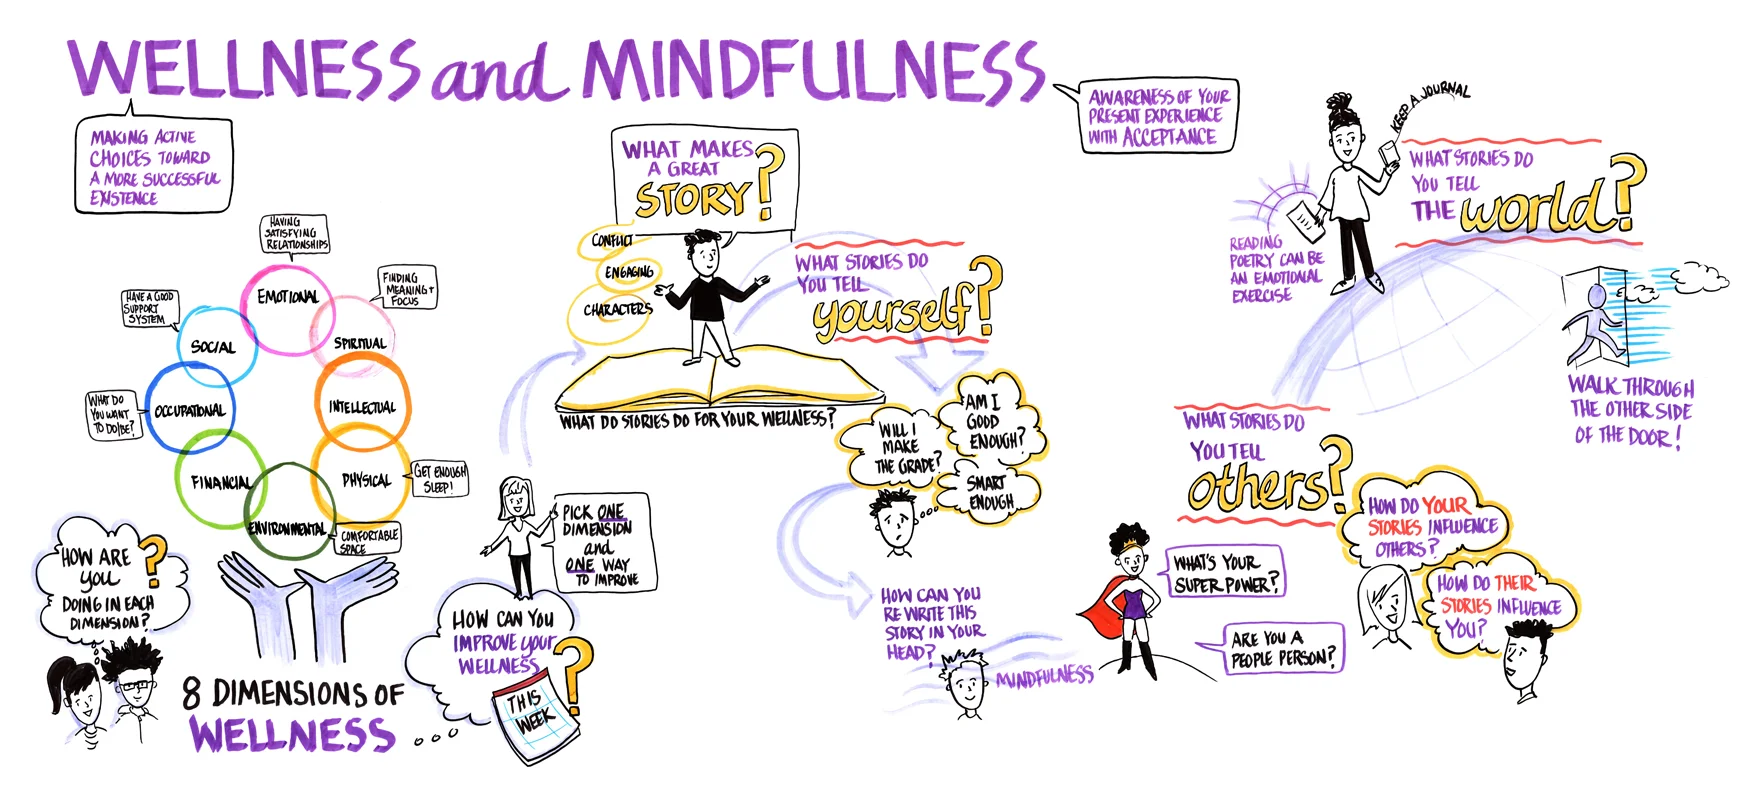 WELLNESS and MINDFULNESS
MAKING ACTIVE
CHOICES TOWARD
A MORE SUCCESSFUL
EXISTENCE
AWARENESS OF YOUR
PRESENT EXPERIENCE
WITH ACCEPTANCE
HAVING
SATISFYING
RELATIONSHIPS
EMOTIONAL
FINDING
MEANING +
FOCUS
SPIRITUAL
HAVE A GOOD
SUPPORT
SYSTEM
SOCIAL
WHAT DO
YOU WANT
TO DO/BE?
OCCUPATIONAL
INTELLECTUAL
FINANCIAL
PHYSICAL
GET ENOUGH
SLEEP!
ENVIRONMENTAL
COMFORTABLE
SPACE
HOW ARE
YOU
DOING IN EACH
DIMENSION?
8 DIMENSIONS OF
WELLNESS
HOW CAN YOU
IMPROVE YOUR
WELLNESS
?
THIS
WEEK
PICK ONE
DIMENSION
and
ONE WAY
TO IMPROVE
WHAT MAKES
A GREAT
STORY?
CONFLICT
ENGAGING
CHARACTERS
WHAT DO STORIES DO FOR YOUR WELLNESS?
WHAT STORIES DO
YOU TELL
yourself?
WILL I
MAKE
THE GRADE?
AM I
GOOD
ENOUGH?
SMART
ENOUGH
HOW CAN YOU
RE WRITE THIS
STORY IN YOUR
HEAD?
MINDFULNESS
WHAT'S YOUR
SUPER POWER?
ARE YOU A
PEOPLE PERSON?
WHAT STORIES DO
YOU TELL
others?
HOW DO YOUR
STORIES INFLUENCE
OTHERS?
HOW DO THEIR
STORIES INFLUENCE
YOU?
KEEP A JOURNAL
WHAT STORIES DO
YOU TELL
THE world?
READING
POETRY CAN BE
AN EMOTIONAL
EXERCISE
WALK THROUGH
THE OTHER SIDE
OF THE DOOR!